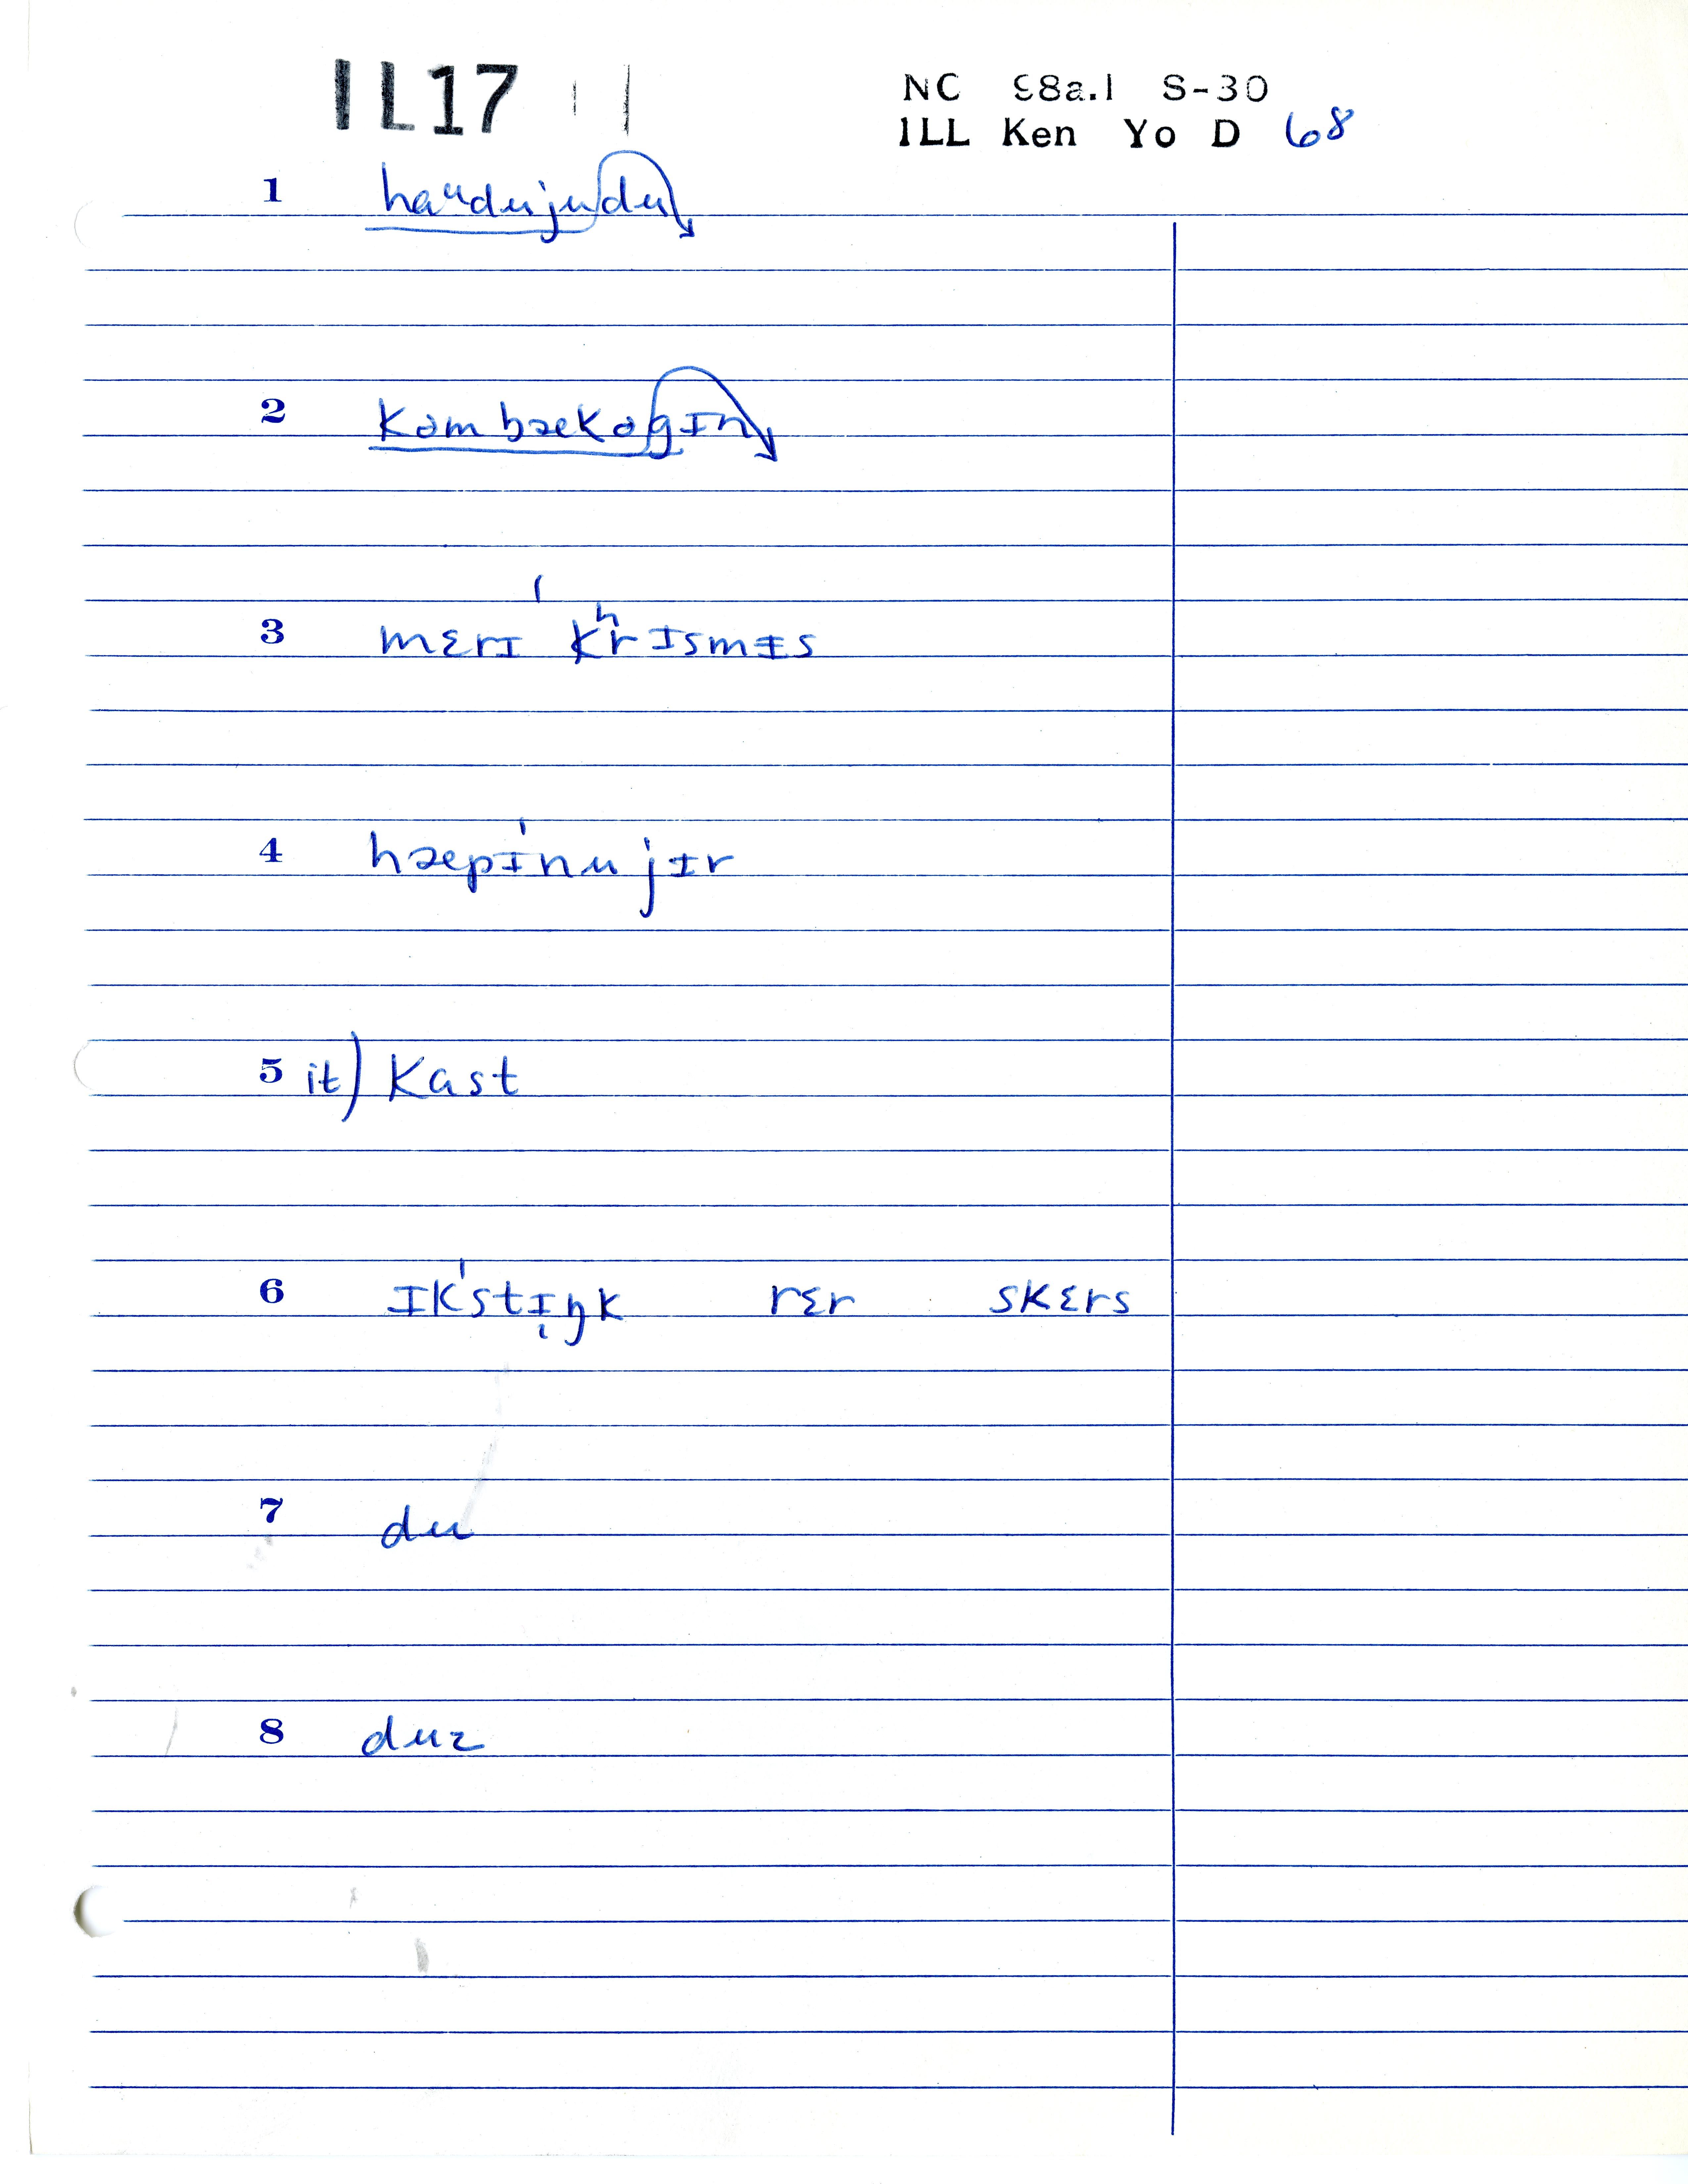 IL17 | |
NC 98a.1 S-30
ILL Ken Yo D 68
1 haᵘdujudu
2 kəmbækəgɪn
3 mɛrɪ ˈkʰrɪsmɪs
4 hæpɪˈnujɪr
5 it) kɑst
6 ɪkˈstɪŋk rɛr skɛrs
7 du
8 duz